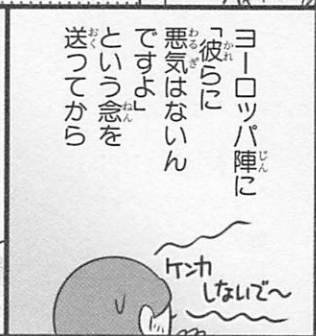 ヨーロッパ陣に
「彼らに
悪気はないん
ですよ」
という念を
送ってから
ケンカ
しないで〜